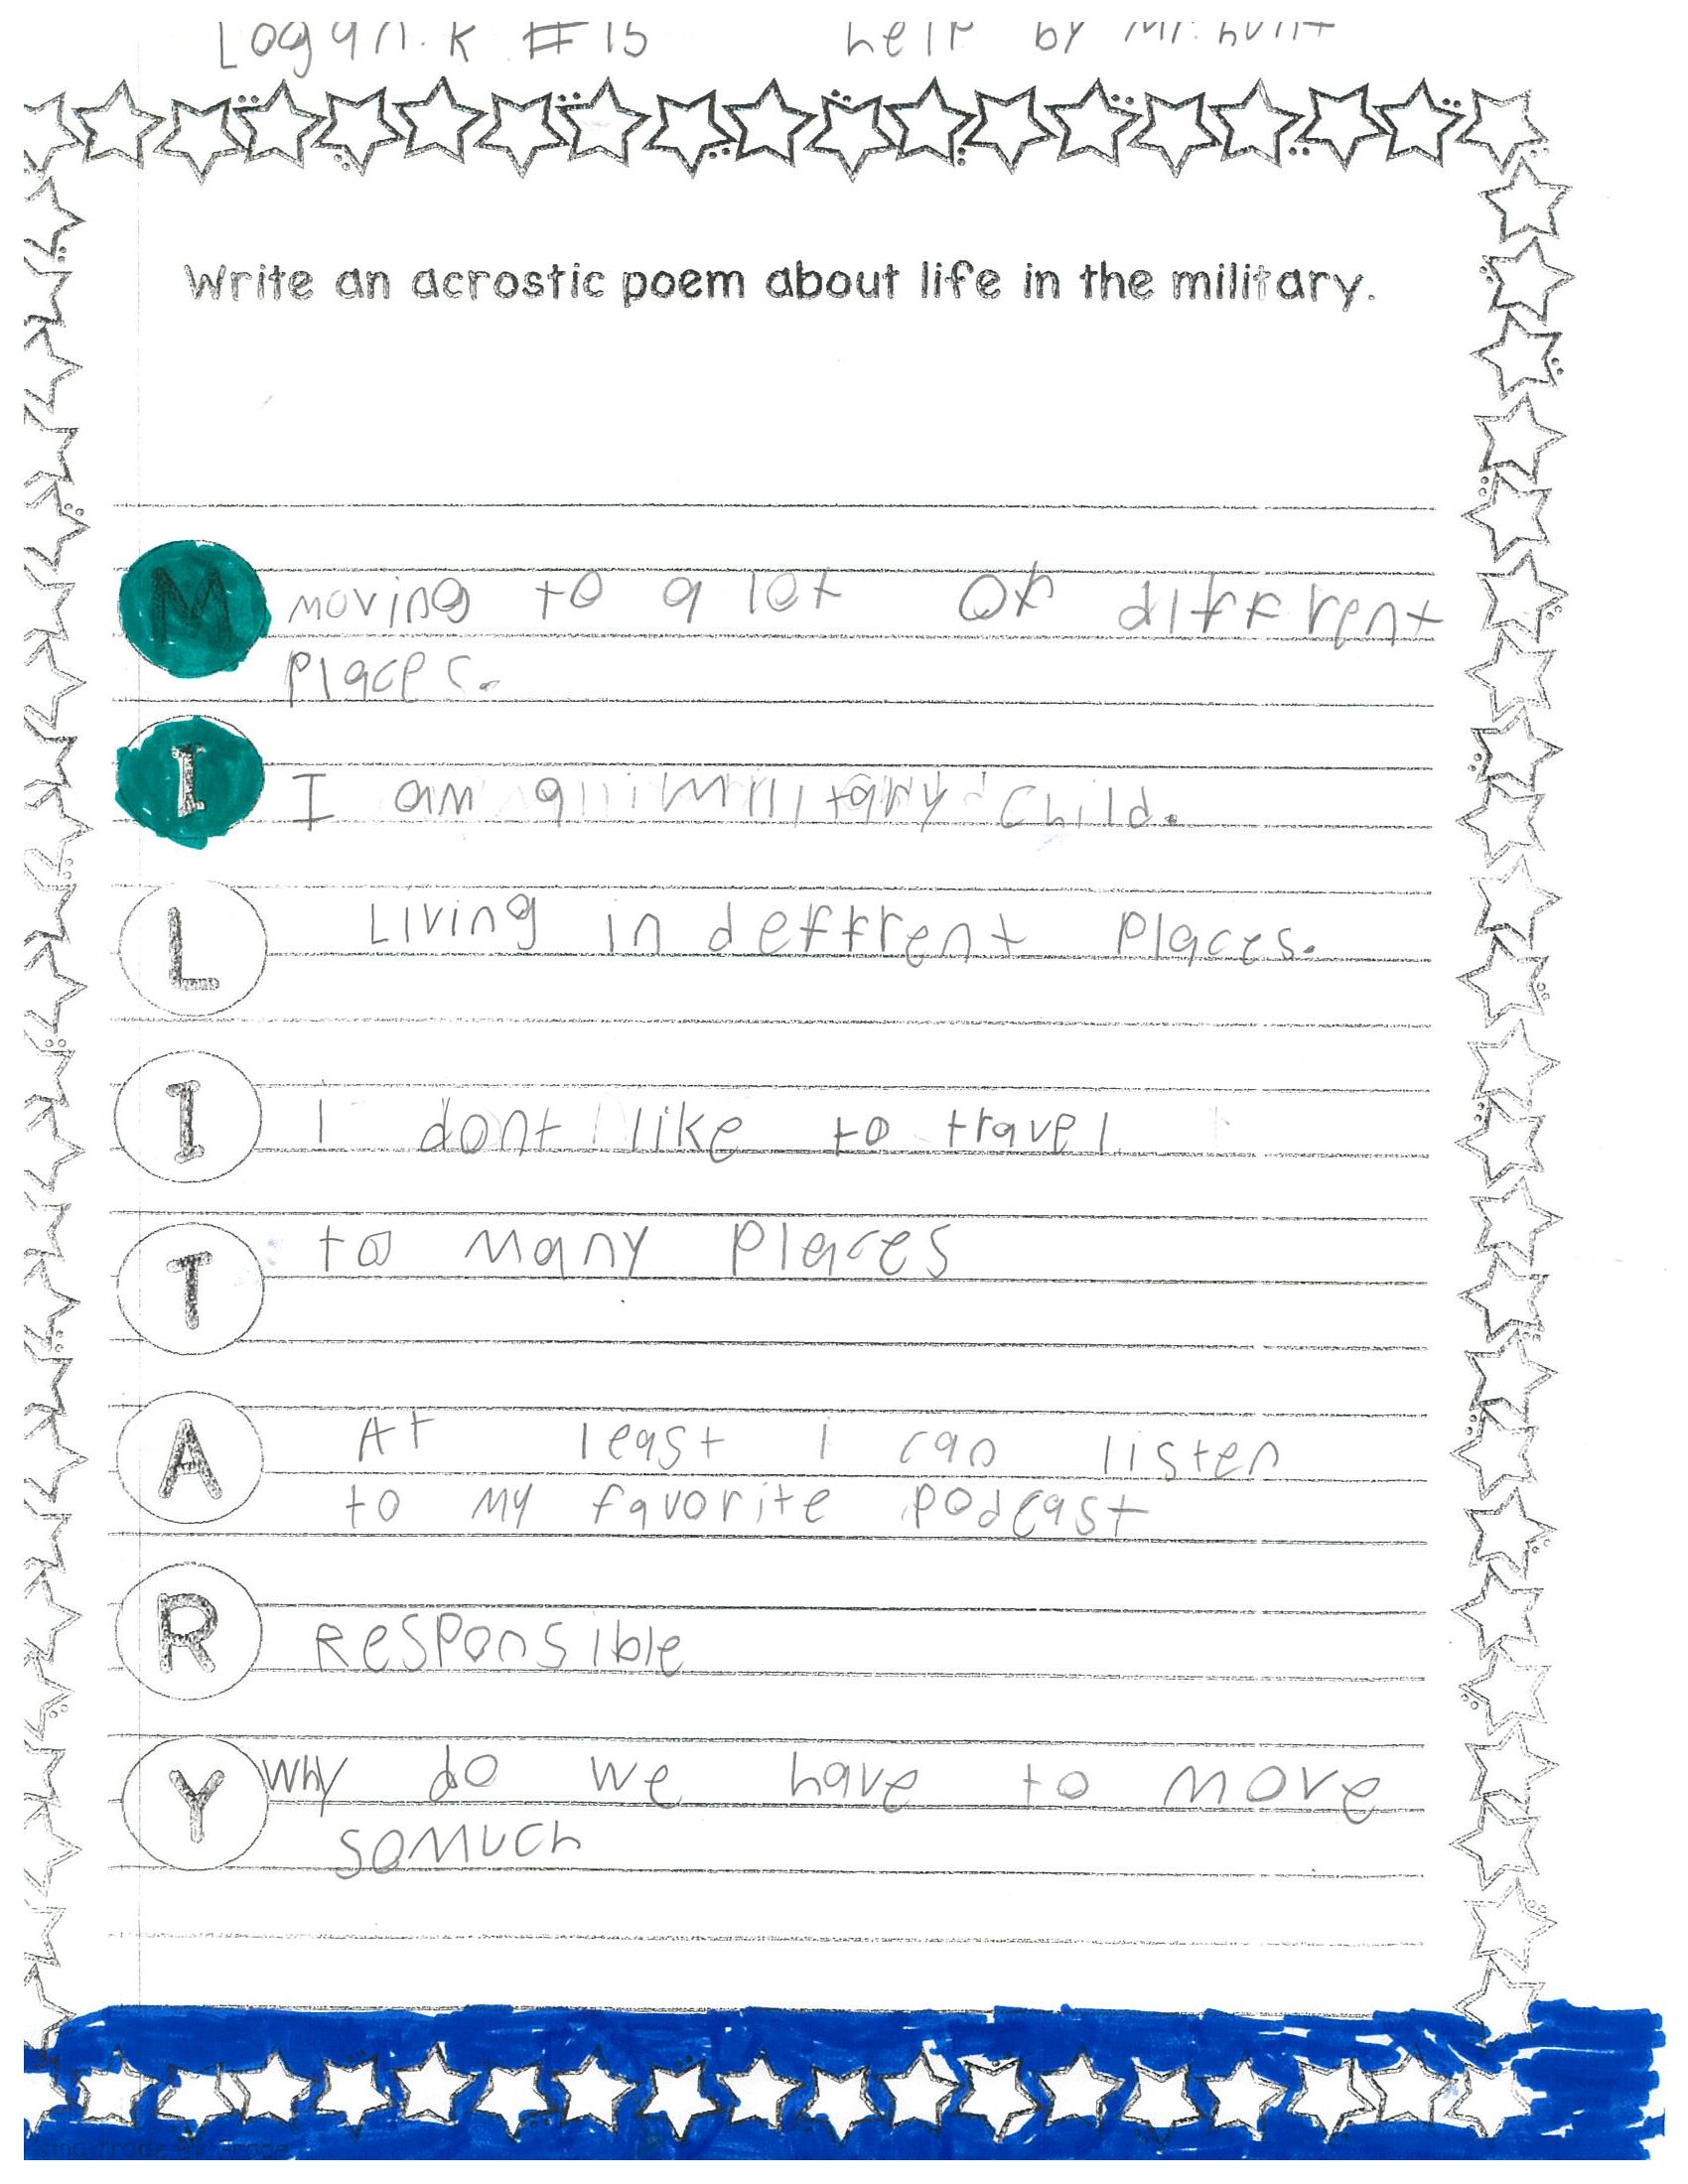 Logan.k #15 help by Mr. hunt
Write an acrostic poem about life in the military.
M moving to a lot of diffrent
places.
I I am a military child.
L Living in deffrent places.
I I dont like to travel
T to many places
A At least i can listen
to my favorite podcast
R Responsible
Y Why do we have to move
somuch